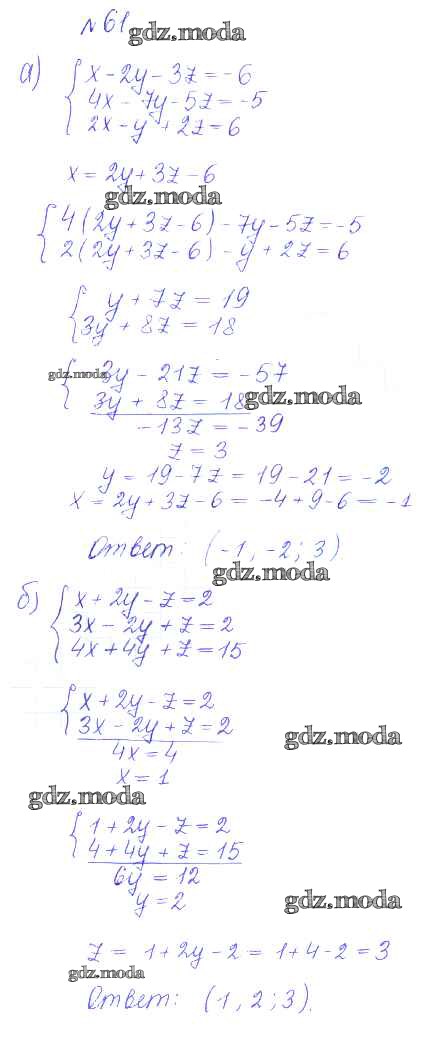 № 61
gdz.moda
а) { x - 2y - 3z = -6
4x - 7y - 5z = -5
2x - y + 2z = 6
x = 2y + 3z - 6
gdz.moda
{ 4(2y + 3z - 6) - 7y - 5z = -5
2(2y + 3z - 6) - y + 2z = 6
{ y + 7z = 19
3y + 8z = 18
{ -3y - 21z = -57
gdz.moda
3y + 8z = 18
gdz.moda
-13z = -39
z = 3
y = 19 - 7z = 19 - 21 = -2
x = 2y + 3z - 6 = -4 + 9 - 6 = -1
Ответ: (-1, -2; 3)
gdz.moda
б) { x + 2y - z = 2
3x - 2y + z = 2
4x + 4y + z = 15
{ x + 2y - z = 2
3x - 2y + z = 2
gdz.moda
4x = 4
x = 1
gdz.moda
{ 1 + 2y - z = 2
4 + 4y + z = 15
6y = 12
y = 2
gdz.moda
z = 1 + 2y - 2 = 1 + 4 - 2 = 3
gdz.moda
Ответ: (1, 2; 3).